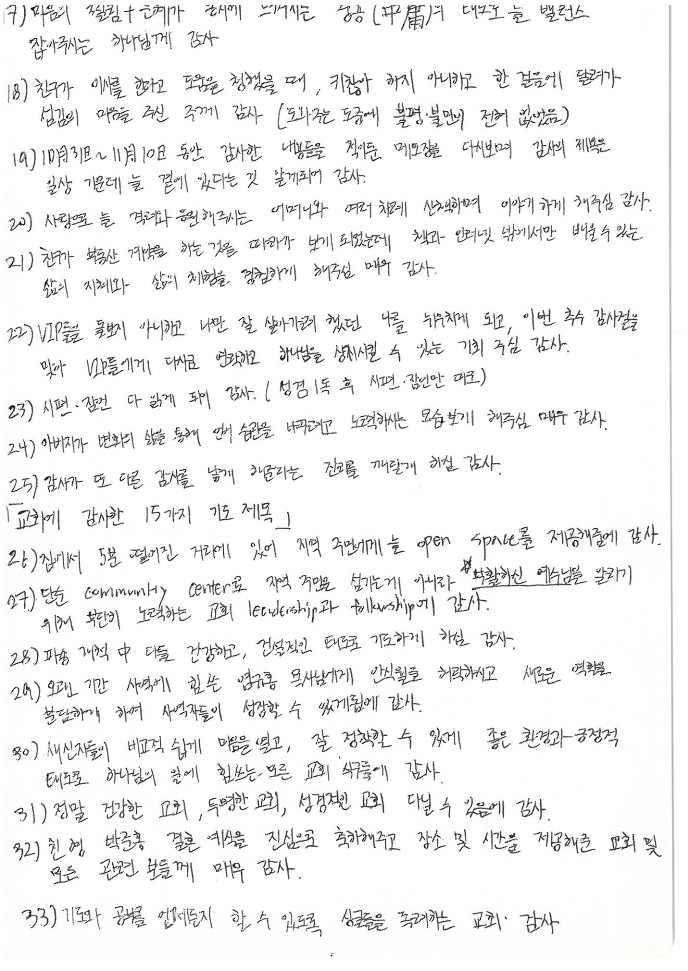 17) 마음의 찔림 + 은혜가 동시에 느껴지는 중용(中庸)의 태도로 늘 밸런스
잡아주시는 하나님께 감사
18) 친구가 이사를 한다고 도움을 청했을 때, 귀찮아 하지 아니하고 한 걸음에 달려가
섬김의 마음을 주신 주께 감사 (도와주는 도중에 불평·불만이 전혀 없었음)
19) 10月31日~11月10日 동안 감사한 내용들을 적어둔 메모장을 다시보며 감사의 제목은
일상 가운데 늘 곁에 있다는 것 알게되어 감사.
20) 사랑으로 늘 격려와 응원해주시는 어머니와 여러 차례 산책하며 이야기하게 해주심 감사.
21) 친구가 부동산 계약을 하는 것을 따라가 보게 되었는데 책과 인터넷 밖에서만 배울 수 있는
삶의 지혜와 삶의 체험을 경험하게 해주심 매우 감사.
22) VIP들을 돌보지 아니하고 나만 잘 살아가려 했던 나를 뉘우치게 되고, 이번 추수 감사절을
맞아 VIP들에게 다시금 연락하고 하나님을 상기시킬 수 있는 기회 주심 감사.
23) 시편·잠언 다 읽게 되어 감사. (성경 1독 후 시편·잠언만 따로)
24) 아버지가 변화의 삶을 통해 언어 습관을 바꾸려고 노력하시는 모습 보게 해주심 매우 감사.
25) 감사가 또 다른 감사를 낳게 한다는 진리를 깨닫게 하심 감사.
「교회에 감사한 15가지 기도 제목」
26) 집에서 5분 떨어진 거리에 있어 지역 주민에게 늘 open space를 제공해줌에 감사.
27) 단순 community center로 지역 주민을 섬기는게 아니라 부활하신 예수님을 알리기
위해 부단히 노력하는 교회 leadership과 fellowship에 감사.
28) 파송 개척 中 다들 건강하고, 건설적인 태도로 기도하게 하심 감사.
29) 오랜 기간 사역에 힘쓴 목사님에게 안식월을 허락하시고 새로운 역할을
분담하게 하여 사역자들이 성장할 수 있게됨에 감사.
30) 새신자들이 비교적 쉽게 마음을 열고, 잘 정착할 수 있게 좋은 환경과 긍정적
태도로 하나님의 일에 힘쓰는 모든 교회 식구들에 감사.
31) 정말 건강한 교회, 투명한 교회, 성경적인 교회 다닐 수 있음에 감사.
32) 친형 박준홍 결혼 예식을 진심으로 축하해주고 장소 및 시간을 제공해준 교회 및
모든 관련 분들께 매우 감사.
33) 기도와 공부를 언제든지 할 수 있도록 싱글들을 독려하는 교회· 감사